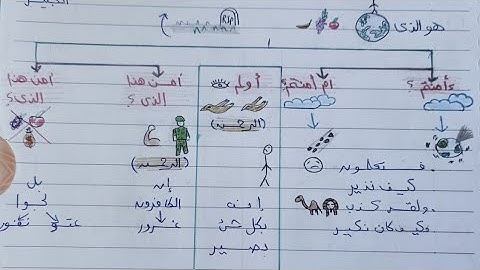 هو الذى
RIP
ءأمنتم ؟
ام أمنتم ؟
أولم
أمن هذا الذى ؟
أمن هذا الذى ؟
(الرحمن)
(الرحمن)
فستعلمون
كيف نذير
ولقد كذب
فكيف كان نكير
إنه
بكل شئ
بصير
إن
الكافرون
غرور
بل
لجوا
عتو ونفور